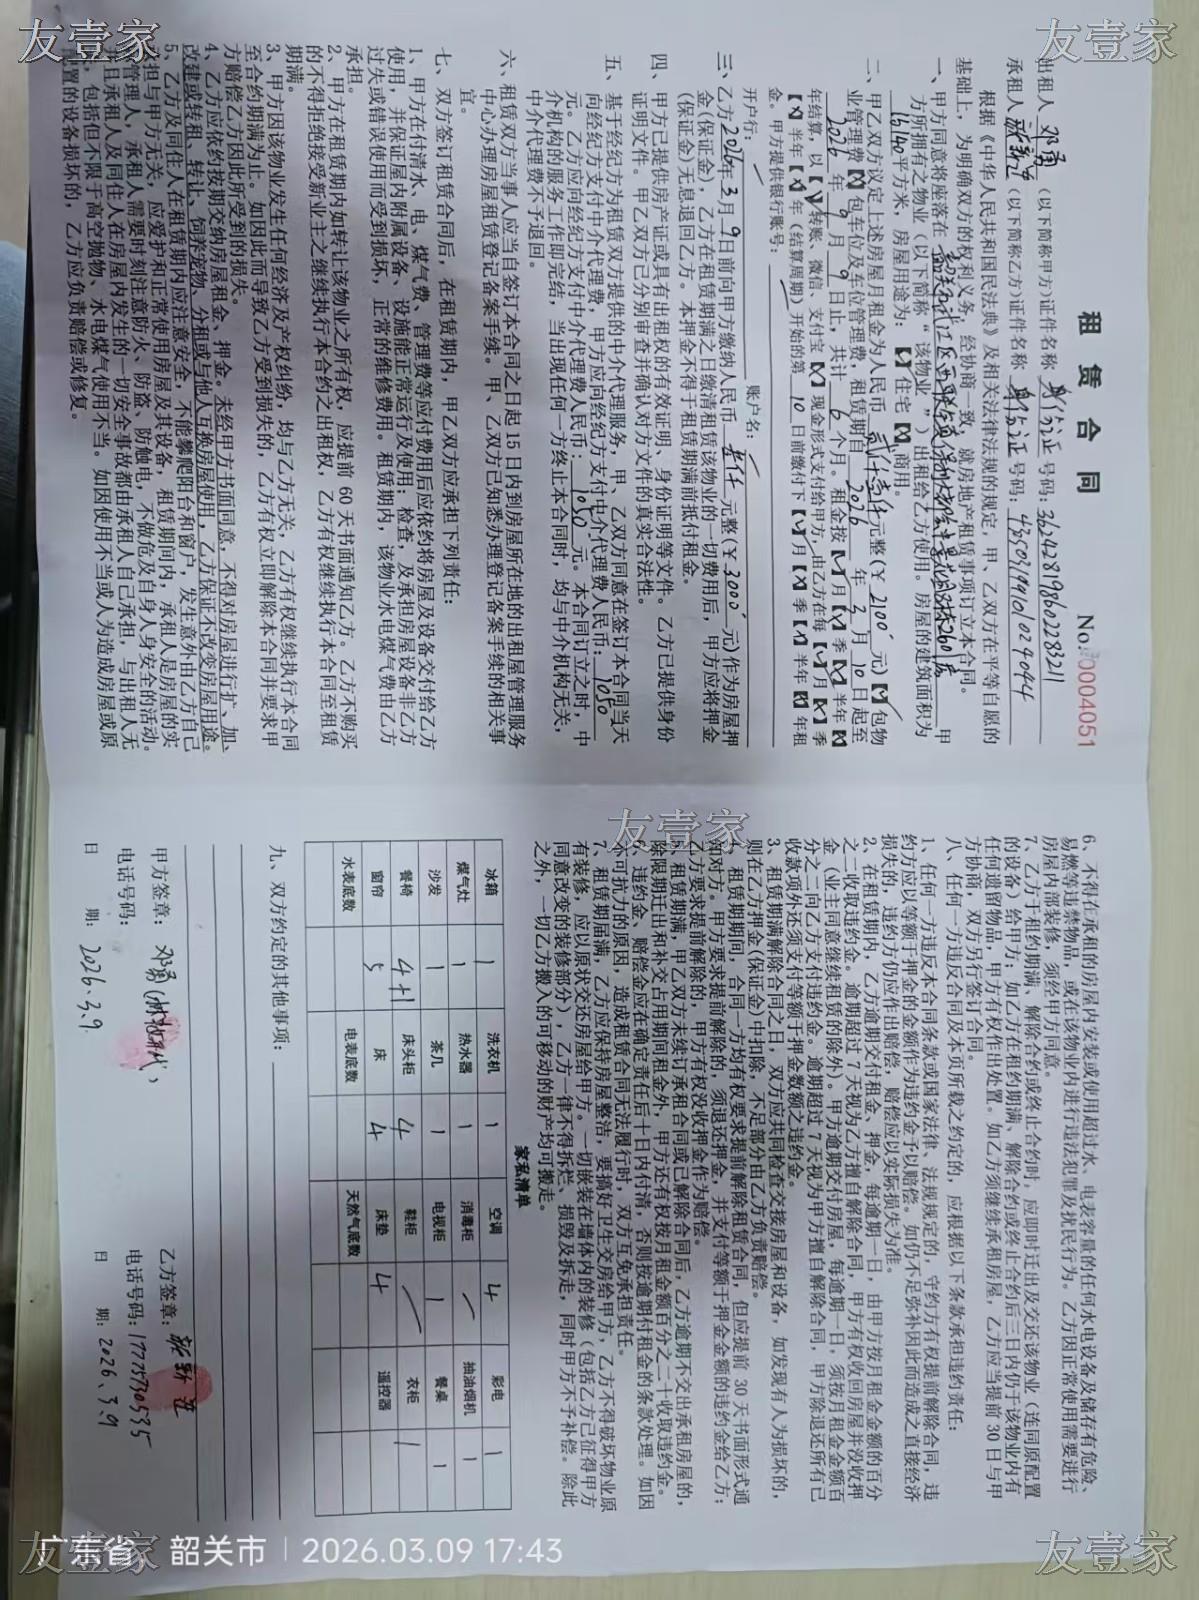 友壹家
友壹家
租赁合同
No.0004051
出租人 邓勇 (以下简称甲方)证件名称 身份证 号码:362428198602283211
承租人 (以下简称乙方)证件名称 身份证 号码:
根据《中华人民共和国民法典》及相关法律法规的规定,甲、乙双方在平等自愿的
基础上,为明确双方的权利义务,经协商一致,就房地产租赁事项订立本合同。
一、甲方同意将座落在 甲
方所拥有之物业(以下简称“该物业”)出租给乙方使用。房屋的建筑面积为
平方米,房屋用途为:【√】住宅【】商用。
二、甲乙双方议定上述房屋月租金为人民币 元整(¥ 2100 元)【】包物
业管理费【】包车位及车位管理费,租赁期自 2026 年 3 月 10 日起至
2026 年 9 月 9 日止,共计 6 个月。租金按【】月【】季【】半年【】
年结算,以【】转账、微信、支付宝【】现金形式支付给甲方,由乙方在每【】月【】季
【】半年【】年(结算周期)开始的第 10 日前缴付下【】月【】季【】半年【】年租
金。甲方提供银行账号:
开户行: 账户名:
三、乙方2026年3月9日前向甲方缴纳人民币 叁仟 元整(¥ 3000 元)作为房屋押
金(保证金),乙方在租赁期满之日缴清租赁该物业的一切费用后,甲方应将押金
(保证金)无息退回乙方。本押金不得于租赁期满前抵付租金。
四、甲方已提供房产证或具有出租权的有效证明、身份证明等文件。乙方已提供身份
证明文件。甲乙双方已分别审查并确认对方文件的真实合法性。
五、基于经纪方为租赁双方提供的中介代理服务,甲、乙双方同意在签订本合同当天
向经纪方支付中介代理费,甲方应向经纪方支付中介代理费人民币: 1050
元。乙方应向经纪方支付中介代理费人民币: 1050 元。本合同订立之时,中
介机构的服务工作即完结,当出现任何一方终止本合同时,均与中介机构无关,
中介代理费不予退回。
六、租赁双方当事人应当自签订本合同之日起15日内到房屋所在地的出租屋管理服务
中心办理房屋租赁登记备案手续。甲、乙双方已知悉办理登记备案手续的相关事
宜。
七、双方签订租赁合同后,在租赁期内,甲乙双方应承担下列责任:
1、甲方在付清水、电、煤气费、管理费等应付费用后应依约将房屋及设备交付给乙方
使用,并保证屋内附属设备、设施能正常运行及使用;检查,及承担房屋设备非乙方
过失或错误使用而受到损坏,正常的维修费用。租赁期内,该物业水电煤气费由乙方
承担。
2、甲方在租赁期内如转让该物业之所有权,应提前60天书面通知乙方。乙方不购买
的不得拒绝接受新业主之继续执行本合约之出租权,乙方有权继续执行本合同至租赁
期满。
3、甲方因该物业发生任何经济及产权纠纷,均与乙方无关,乙方有权继续执行本合同
至合约期满为止。如因此而导致乙方受到损失的,乙方有权立即解除本合同并要求甲
方赔偿乙方因此所受到的损失。
4、乙方应依约按期交纳房屋租金、押金。未经甲方书面同意,不得对房屋进行扩、加、
改建或转租、转让、饲养宠物、分租或与他人互换房屋使用,乙方保证不改变房屋用途。
5、乙方及同住人在租赁期内应注意安全,不能攀爬阳台和窗户,发生意外由乙方自己
承担与甲方无关,应爱护和正常使用房屋及其设备,租赁期间内,承租人是房屋的实
际管理人,承租人需要时刻注意防火、防盗、防触电,不做危及自身人身安全的活动。
并且承租人及同住人在房屋内发生的一切安全事故都由承租人自己承担,与出租人无
关,包括但不限于高空抛物、水电煤气使用不当。如因使用不当或人为造成房屋或原
配置的设备损坏的,乙方应负责赔偿或修复。
6、不得在承租的房屋内安装或使用超过水、电表容量的任何水电设备及储存有危险、
易燃等违禁物品,或在该物业内进行违法犯罪及扰民行为。乙方因正常使用需要进行
房屋内部装修,须经甲方同意。
7、乙方于租约期满、解除合约或终止合约时,应即时迁出及交还该物业(连同原配置
的设备)给甲方;如乙方在租约期满、解除合约或终止合约后三日内仍于该物业内有
任何遗留物品,甲方有权作出处置。如乙方须继续承租房屋,乙方应当提前30日与甲
方协商,双方另行签订合同。
八、任何一方违反合同及本页所载之约定的,应根据以下条款承担违约责任:
1、任何一方违反本合同条款或国家法律、法规规定的,守约方有权提前解除合同,违
约方应以等额于押金的金额作为违约金予以赔偿。如仍不足弥补因此而造成之直接经济
损失的,违约方仍应作出赔偿,赔偿应以实际损失为准。
2、在租赁期内,乙方逾期交付租金、押金,每逾期一日,由甲方按月租金金额的百分
之二收取违约金。逾期超过7天视为乙方擅自解除合同,甲方有权收回房屋并没收押
金(业主同意继续租赁的除外)。甲方逾期交付房屋,每逾期一日,须按月租金金额百
分之二向乙方支付违约金。逾期超过7天视为甲方擅自解除合同,甲方除退还所有已
收款项外还须支付等额于押金数额之违约金。
3、租赁期满解除合同之日,双方应共同检查交接房屋和设备,如发现有人为损坏的,
则在乙方押金(保证金)中扣除,不足部分由乙方负责赔偿。
4、租赁期间,合同一方均有权要求提前解除租赁合同,但应提前30天书面形式通
知对方。甲方要求提前解除的,须退还押金,并支付等额于押金金额的违约金给乙方;
乙方要求提前解除的,甲方有权没收押金作为赔偿。
5、租赁期满,甲乙双方未续订承租合同或已解除合同后,乙方逾期不交出承租房屋的,
除限期迁出和补交占用期间租金外,甲方还有权按月租金额百分之二十收取违约金。
6、违约金、赔偿金应在确定责任后十日内付清,否则按逾期付租金的条款处理。如因
不可抗力的原因,造成租赁合同无法履行时,双方互免承担责任。
7、租赁期届满,乙方应保持房屋整洁,要搞好卫生交房给甲方,乙方不得破坏物业原
有装修,应以原状交还房屋给甲方。一切嵌装在墙体内的装修(包括乙方已征得甲方
同意改变的装修部分),乙方一律不得拆烂、损毁及拆走,同时甲方不予补偿。除此
之外,一切乙方搬入的可移动的财产均可搬走。
家私清单
冰箱 1 洗衣机 1 空调 4 彩电 1
煤气灶 1 热水器 1 消毒柜 / 抽油烟机 1
沙发 1 茶几 1 电视柜 1 餐桌 1
餐椅 4+1 床头柜 4 鞋柜 / 衣柜 1
窗帘 5 床 4 床垫 4 遥控器
水表底数 电表底数 天然气底数
九、双方约定的其他事项:
甲方签章: 邓勇 乙方签章:
电话号码: 电话号码: 17775730535
日 期: 2026.3.9 日 期: 2026.3.9
友壹家
广东省 韶关市 2026.03.09 17:43
友壹家
友壹家